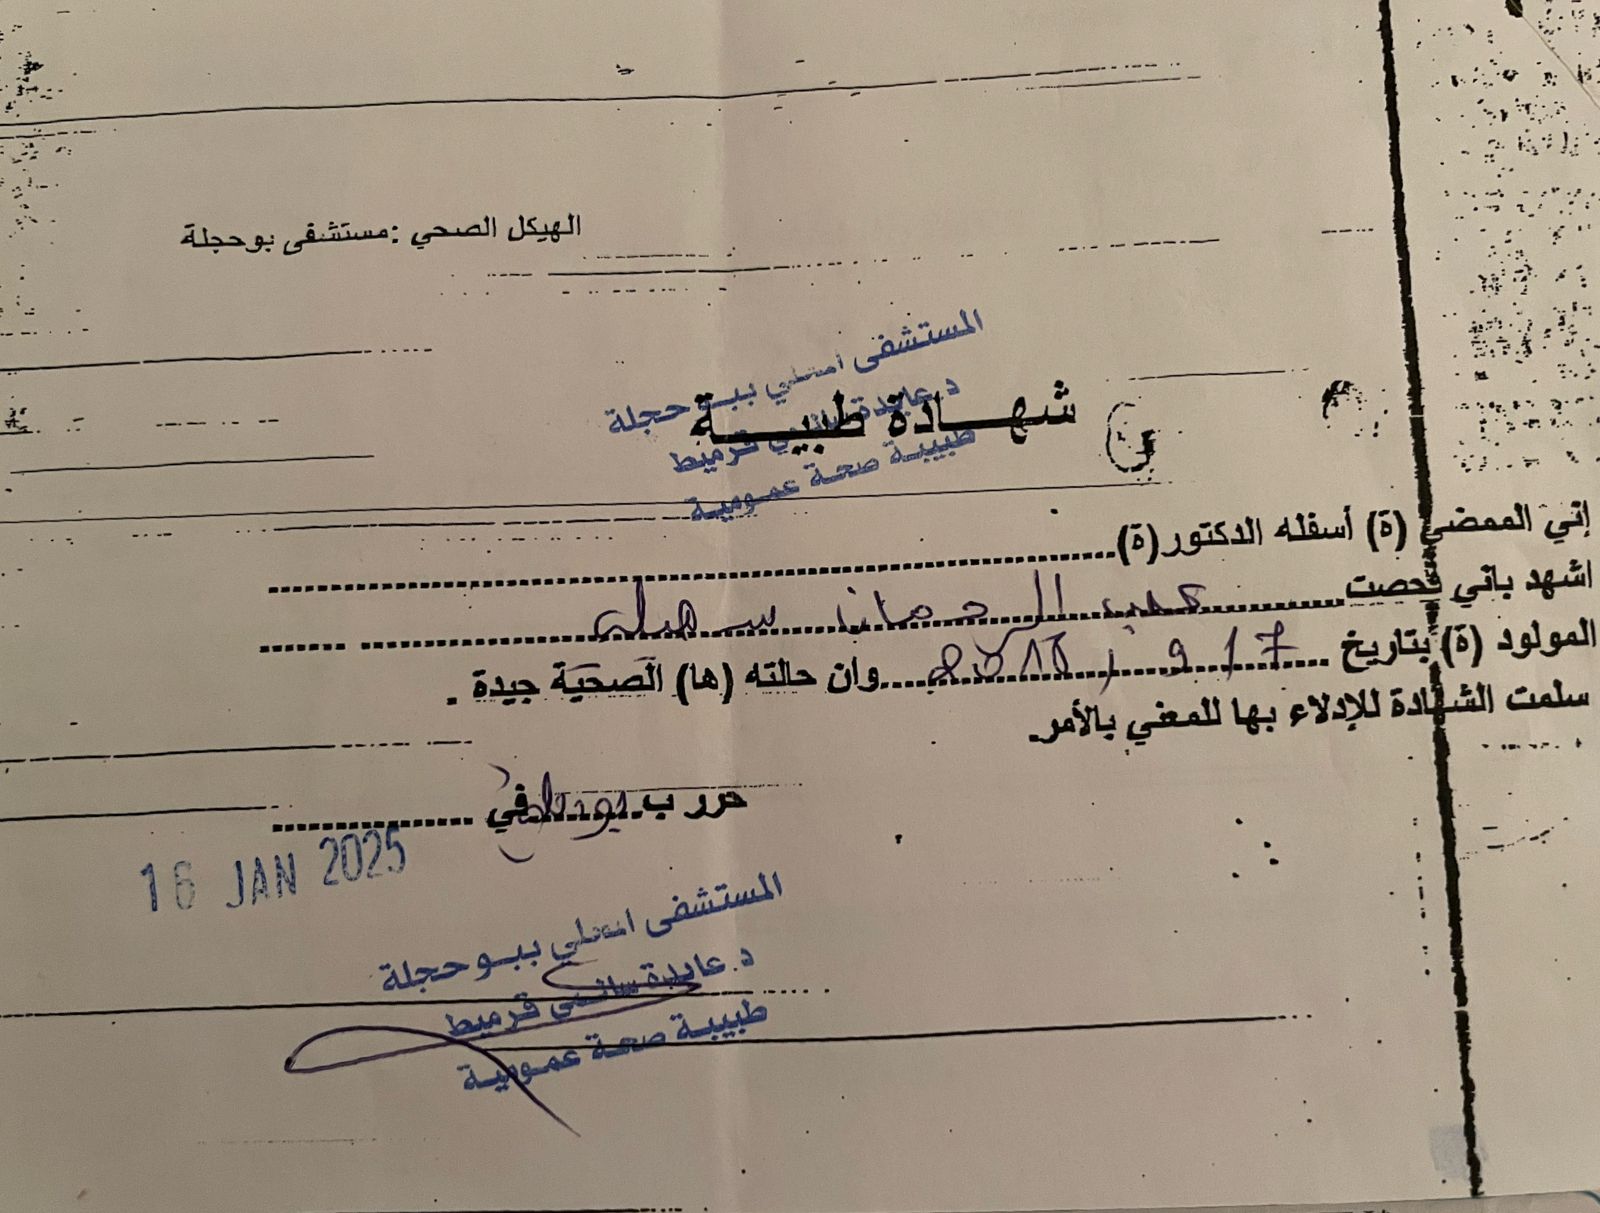 الهيكل الصحي :مستشفى بوحجلة
المستشفى المحلي ببوحجلة
شهادة طبية
د.عايدة قرميط
طبيبة صحة عمومية
إني الممضي (ة) أسفله الدكتور(ة)
اشهد باني فحصت عبد الرحمان سهيل
المولود (ة) بتاريخ وان حالته (ها) الصحية جيدة .
سلمت الشهادة للإدلاء بها للمعني بالأمر.
حرر ب في
16 JAN 2025
المستشفى المحلي ببوحجلة
د.عايدة قرميط
طبيبة صحة عمومية